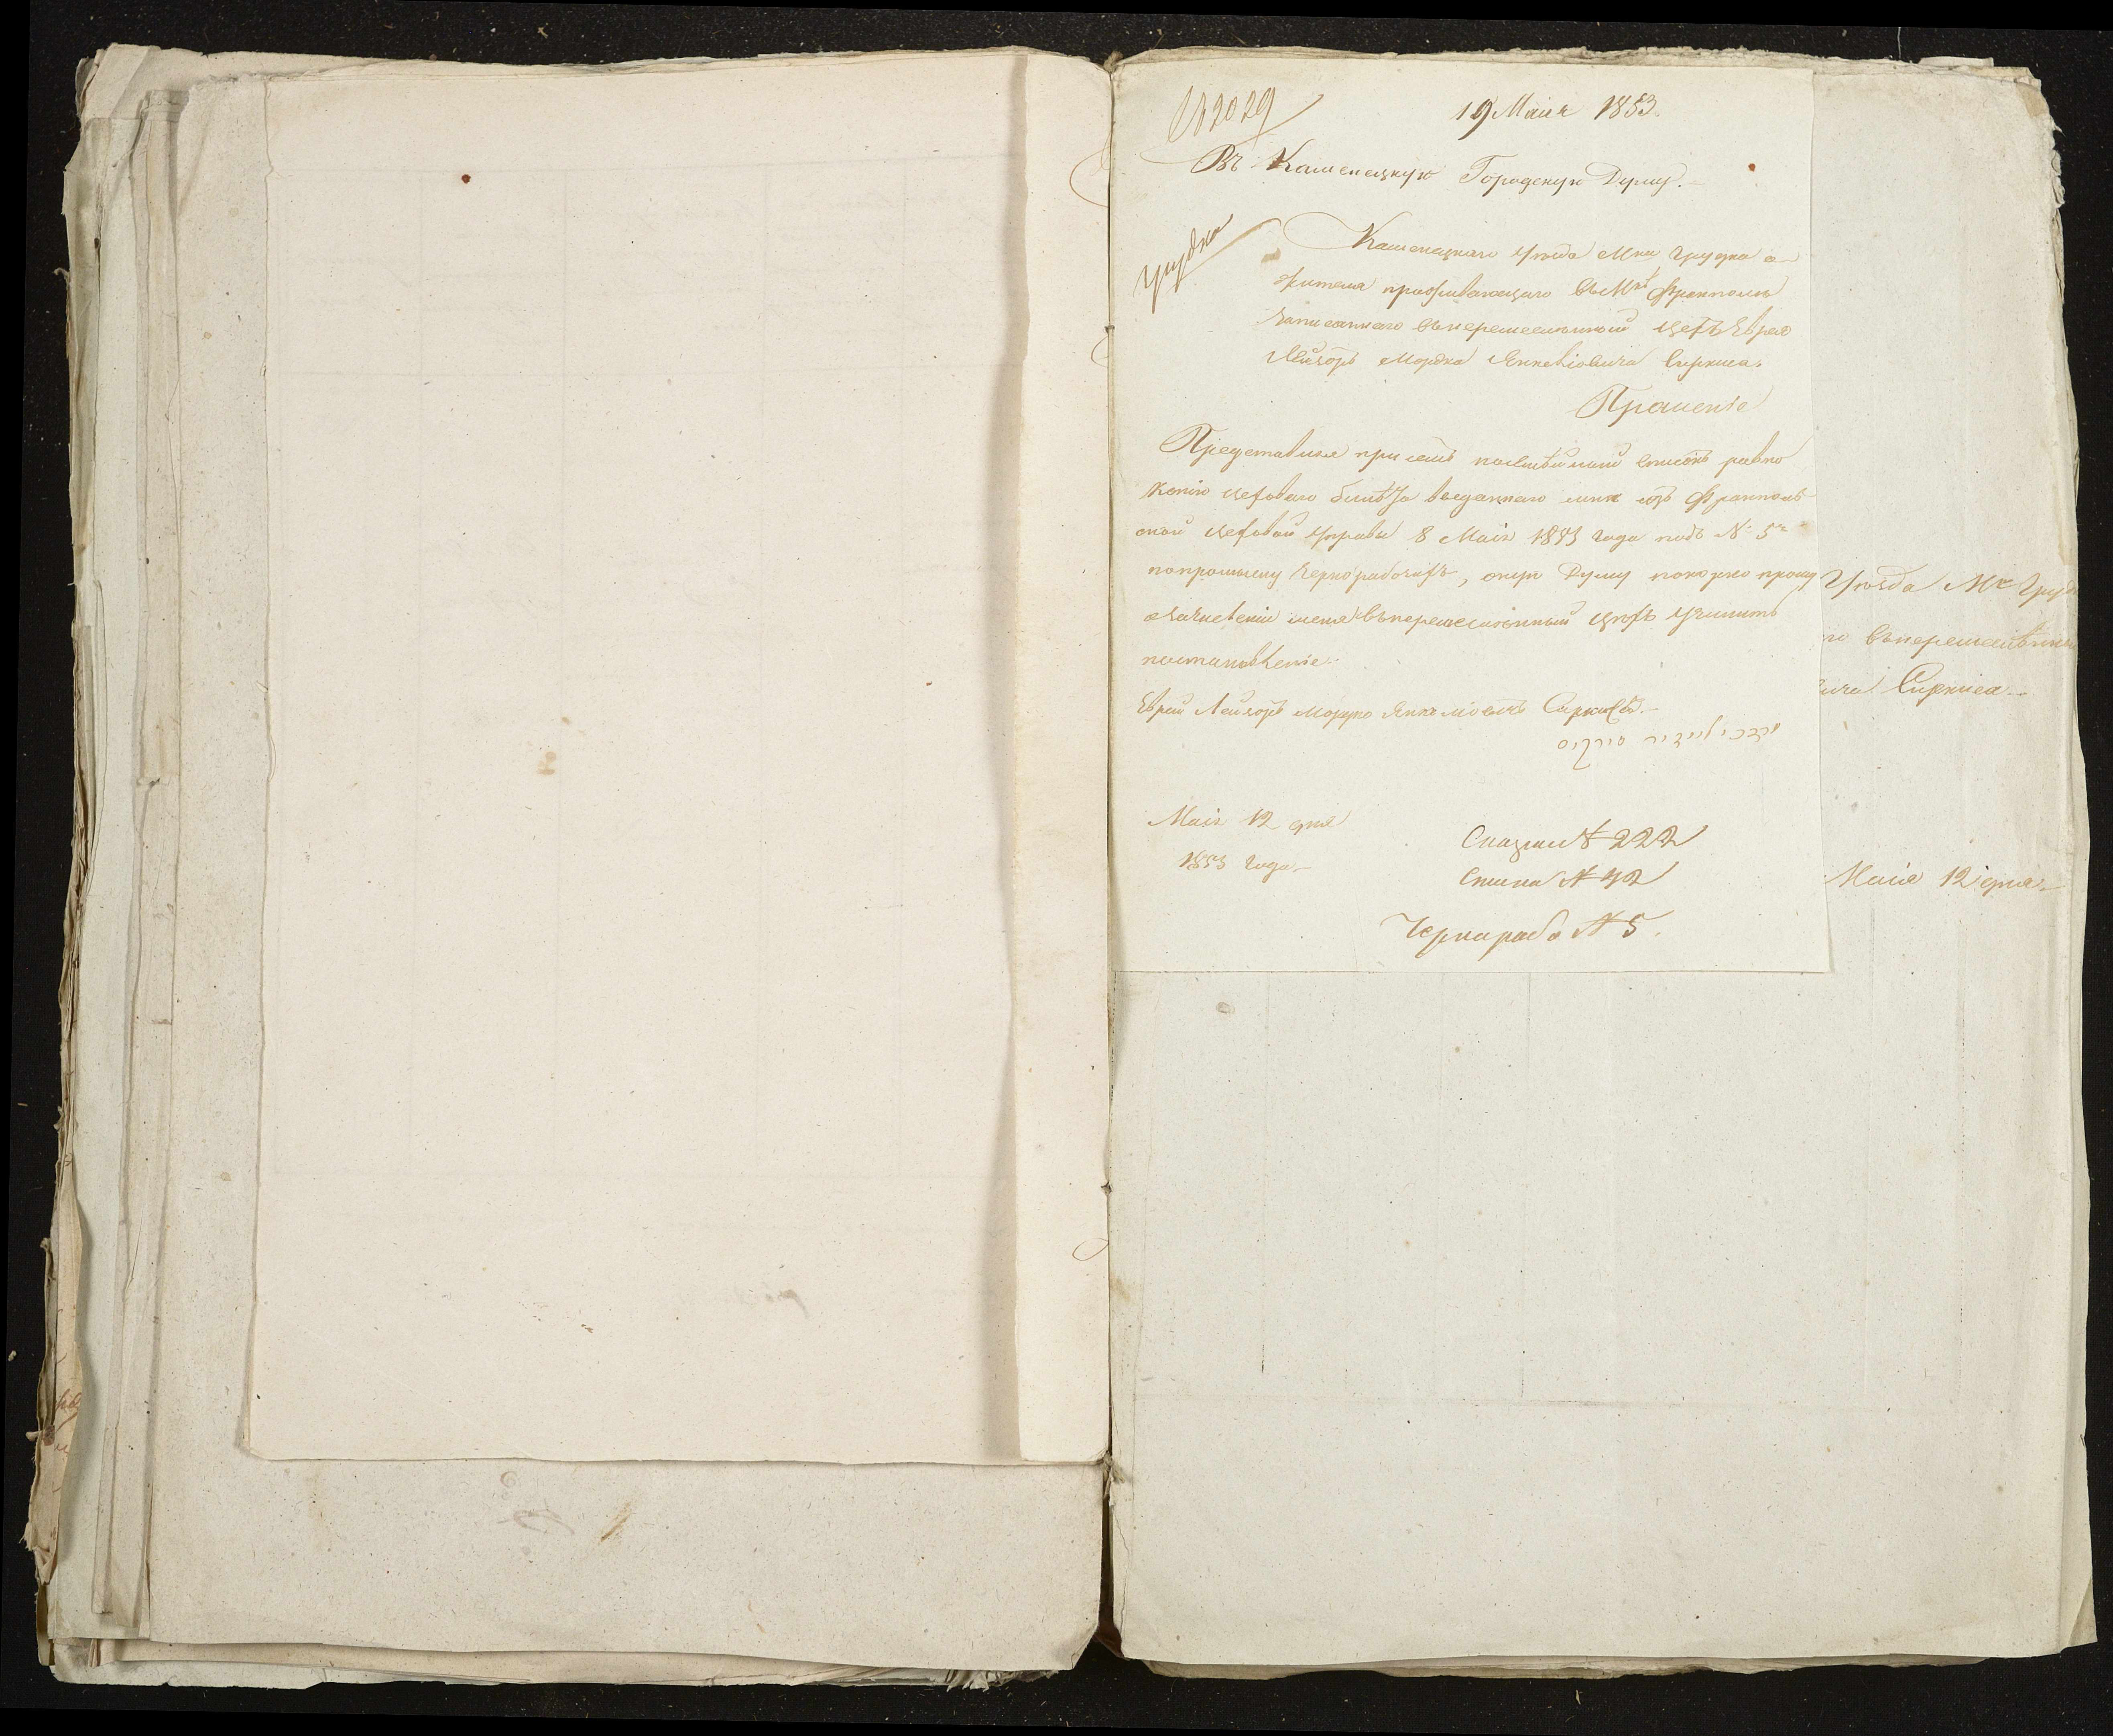 № 2029
19 Маия 1853.
Въ Каменецкую Городскую Думу.
Грудка
Каменецкаго уѣзда Мка Грудка
жителя проживающаго въ Мкѣ Франполѣ
записаннаго въ неремесленной цехъ Еврея
Лейзоръ Мордка Янкелiовича Сиркиса.
Прошенiе
Представляя при семъ посемейный списокъ равно
копiю цеховаго билѣта выданнаго мнѣ изъ Франполь
ской цеховой управы 8 Маiя 1853 года подъ № 5м
попромыслу чернорабочихъ, оную Думу покорно прошу
о зачисленiи меня въ неремесленный цехъ учинить
постановленiе.
Еврей Лейзоръ Мордко Янкелiовичъ Сиркисъ.
מרדכי לייזיר סירקיס
Маiя 12 дня
1853 года
Сказки № 222
Списка № 42
Чернорабо № 5.
Уѣзда Мка Груд
въ неремеслѣнны
Сиркиса
Маiя 12 дня